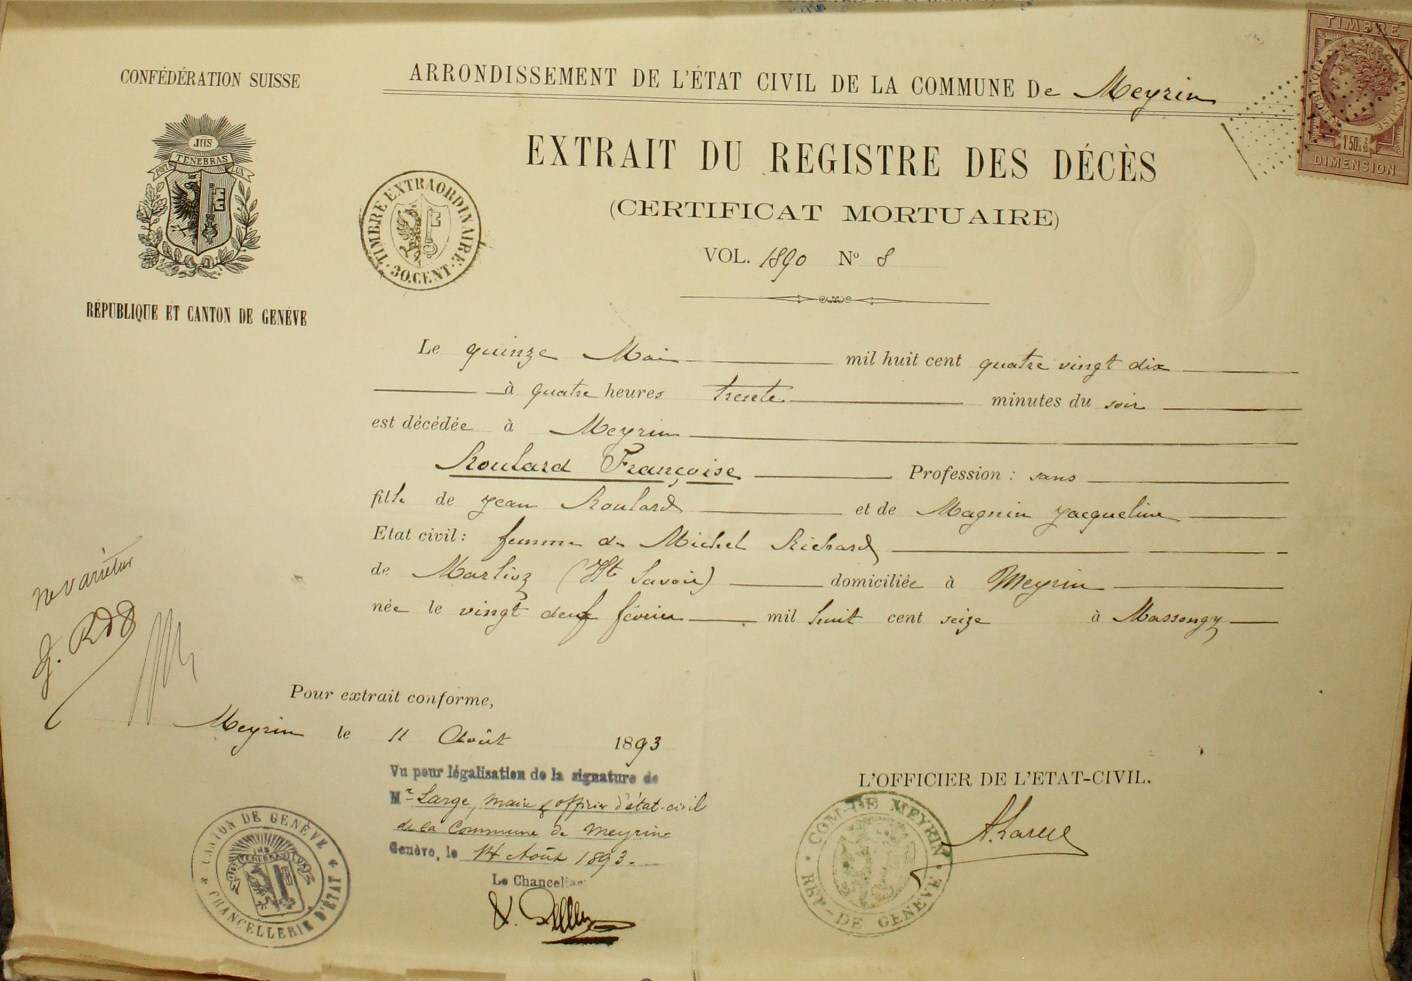 CONFÉDÉRATION SUISSE
JHS
POST TENEBRAS LUX
RÉPUBLIQUE ET CANTON DE GENÈVE
ARRONDISSEMENT DE L'ÉTAT CIVIL DE LA COMMUNE De Meyrin
TIMBRE
DIMENSION
EXTRAIT DU REGISTRE DES DÉCÈS
(CERTIFICAT MORTUAIRE)
TIMBRE EXTRAORDINAIRE
30.CENT
VOL. 1890 No 8
Le quinze Mai mil huit cent quatre vingt dix
à quatre heures trente minutes du soir
est décédée à Meyrin
Roulard Françoise Profession : sans
fille de Jean Roulard et de Magnin Jacqueline
Etat civil : femme de Michel Richard
de Marlioz (Hte Savoie) domiciliée à Meyrin
née le vingt neuf février mil huit cent seize à Massongy
ne varietur
Pour extrait conforme,
Meyrin le 11 Août 1893
Vu pour légalisation de la signature de
Mr Large, maire & officier d'état-civil
de la Commune de Meyrin
Genève, le 14 Août 1893.
Le Chancelier
L'OFFICIER DE L'ETAT-CIVIL.
CANTON DE GENÈVE
CHANCELLERIE D'ÉTAT
COM. DE MEYRIN
REP. DE GENÈVE